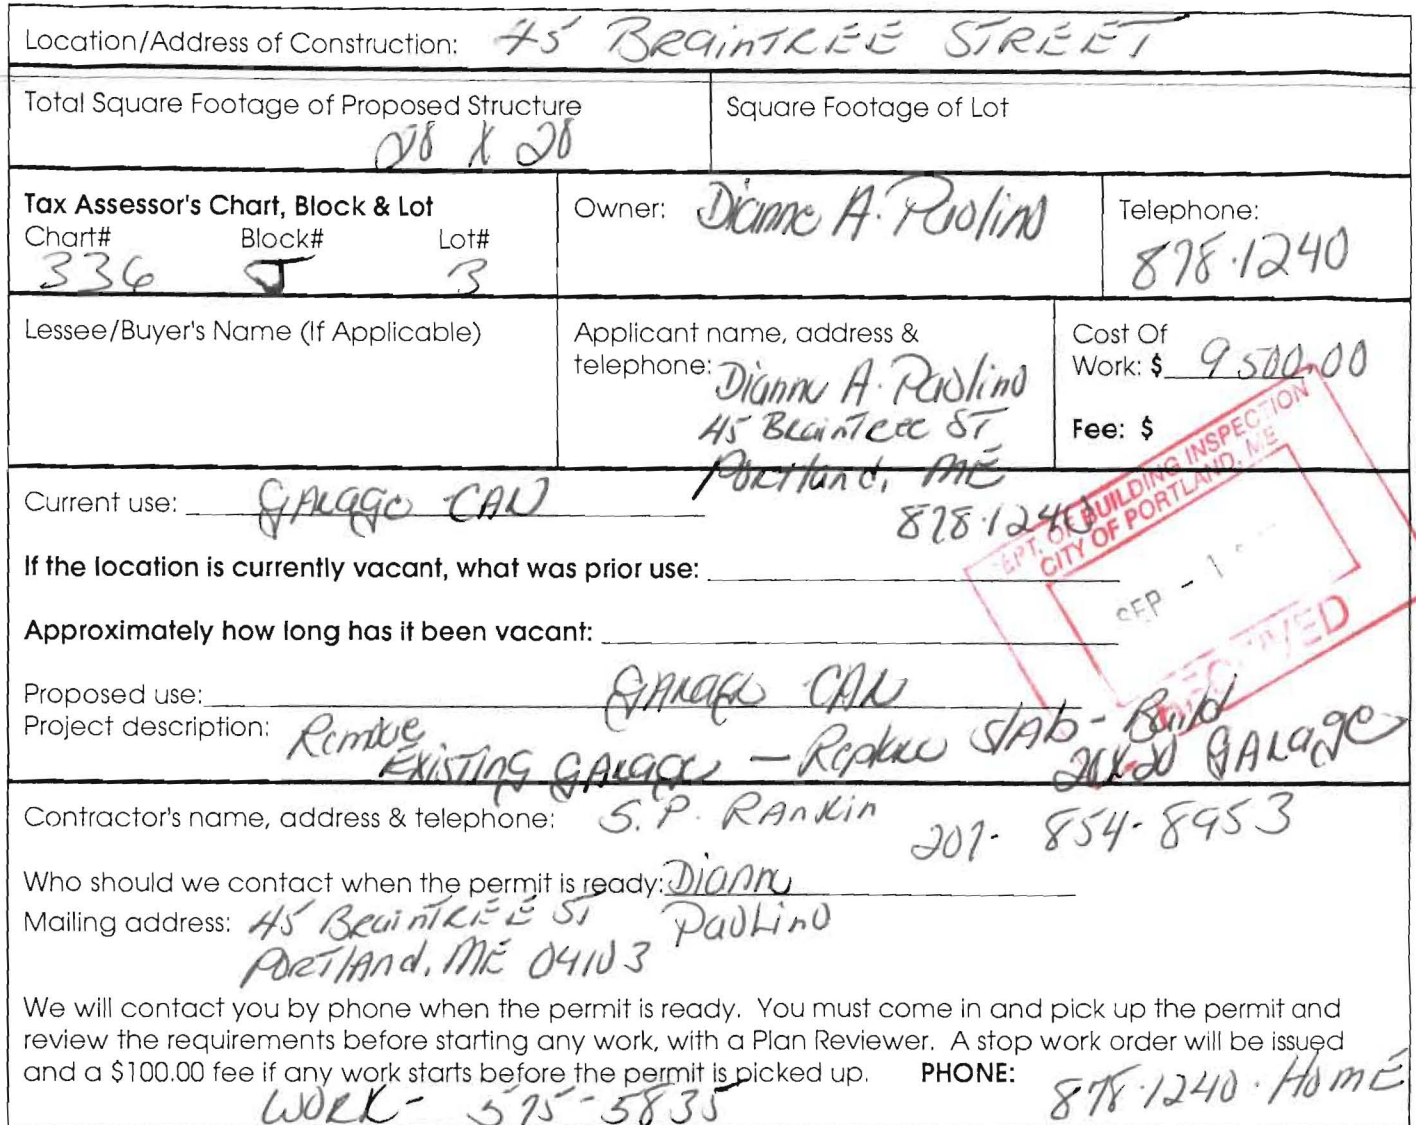 Location/Address of Construction: 45 BRainTREE STREET
Total Square Footage of Proposed Structure
Square Footage of Lot
20 X 20
Tax Assessor's Chart, Block & Lot
Chart# Block# Lot#
336 J 3
Owner: Dianne A. Paolino
Telephone:
878.1240
Lessee/Buyer's Name (If Applicable)
Applicant name, address &
telephone: Dianne A. Paolino
45 BRainTree ST
Portland, ME
878.1240
Cost Of
Work: $ 9500.00
Fee: $
DEPT. OF BUILDING INSPECTION
CITY OF PORTLAND, ME
SEP - 1
RECEIVED
Current use: GARage
If the location is currently vacant, what was prior use:
Approximately how long has it been vacant:
Proposed use: GARage
Project description: Remove
EXISTING GARage - Replace SlAb - Build
20X20 GARage
Contractor's name, address & telephone: S.P. RAnkin 207- 854-8953
Who should we contact when the permit is ready: Dianne
Paolino
Mailing address: 45 BRainTREE ST
PORTlAnd, ME 04103
We will contact you by phone when the permit is ready. You must come in and pick up the permit and
review the requirements before starting any work, with a Plan Reviewer. A stop work order will be issued
and a $100.00 fee if any work starts before the permit is picked up. PHONE:
878.1240. HomE
WORK- 575-5835